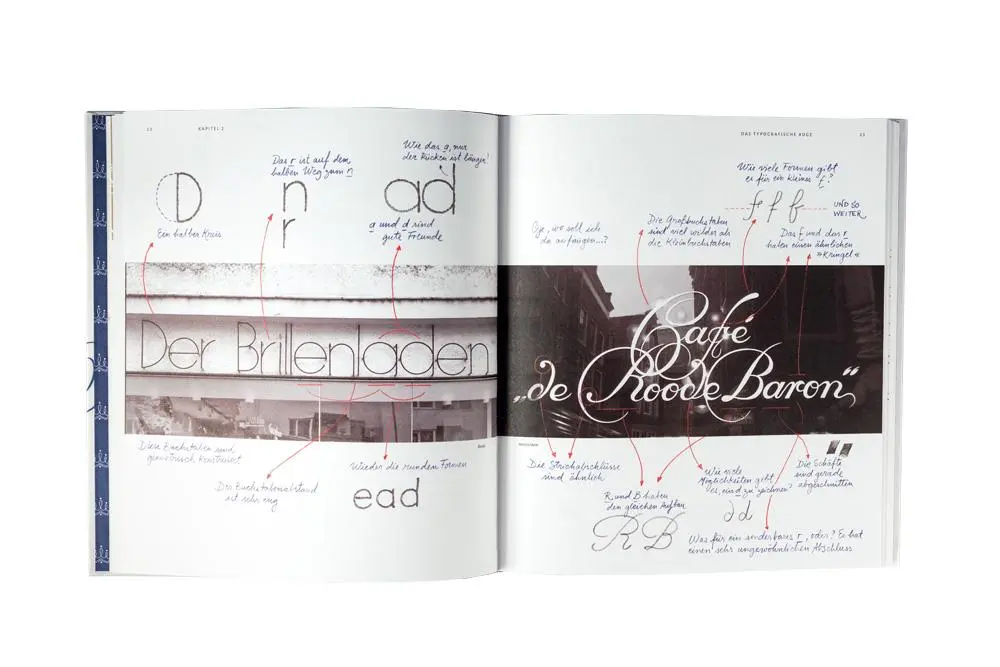 KAPITEL 2
Das r ist auf dem
halben Weg zum n
Wie das a, nur
der Rücken ist länger!
D
n
r
ad
Ein halber Kreis
a und d sind
gute Freunde
Der Brillenladen
Diese Buchstaben sind
geometrisch konstruiert
Der Buchstabenabstand
ist sehr eng
Wieder die runden Formen
ead
DAS TYPOGRAFISCHE AUGE
Wie viele Formen gibt
es für ein kleines f?
f f f
UND SO
WEITER
Oje, wo soll ich
da anfangen...?
Die Großbuchstaben
sind viel wilder als
die Kleinbuchstaben
Das f und das r
haben einen ähnlichen
»Kringel«
Café
„de Roode Baron“
Die Strichabschlüsse
sind ähnlich
R und B haben
den gleichen Aufbau
R B
Wie viele
Möglichkeiten gibt
es, ein d zu zeichnen?
d d
Die Schäfte
sind gerade
abgeschnitten
Was für ein sonderbares r, oder? Es hat
einen sehr ungewöhnlichen Abschluss